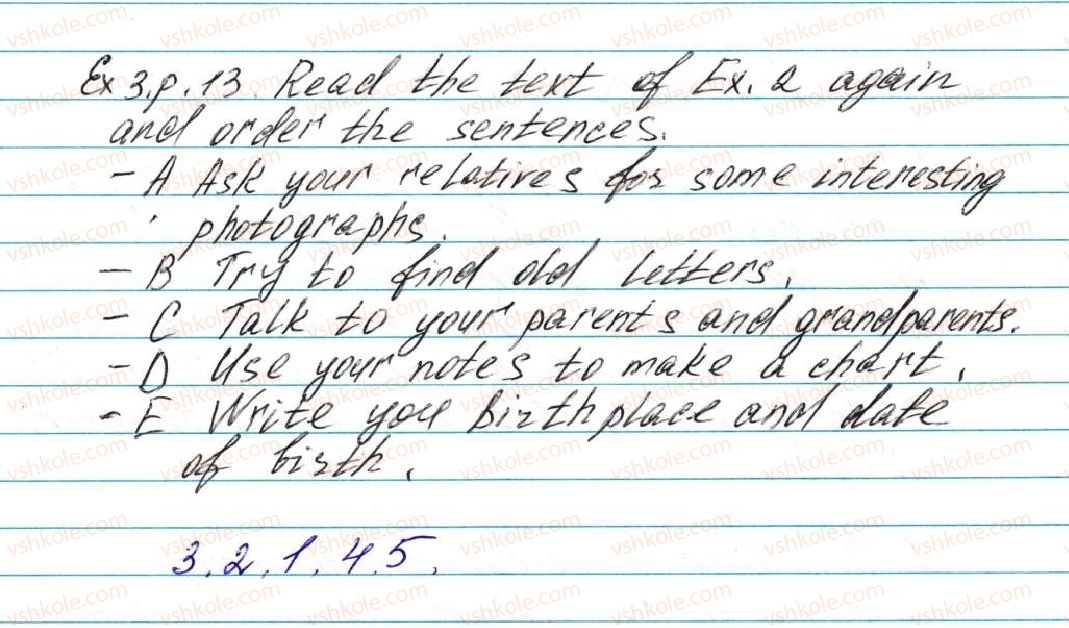 Ex 3.p.13. Read the text of Ex. 2 again
and order the sentences.
- A Ask your relatives for some interesting
photographs.
- B Try to find old letters.
- C Talk to your parents and grandparents.
- D Use your notes to make a chart.
- E Write you birthplace and date
of birth.
3.2.1.4.5.